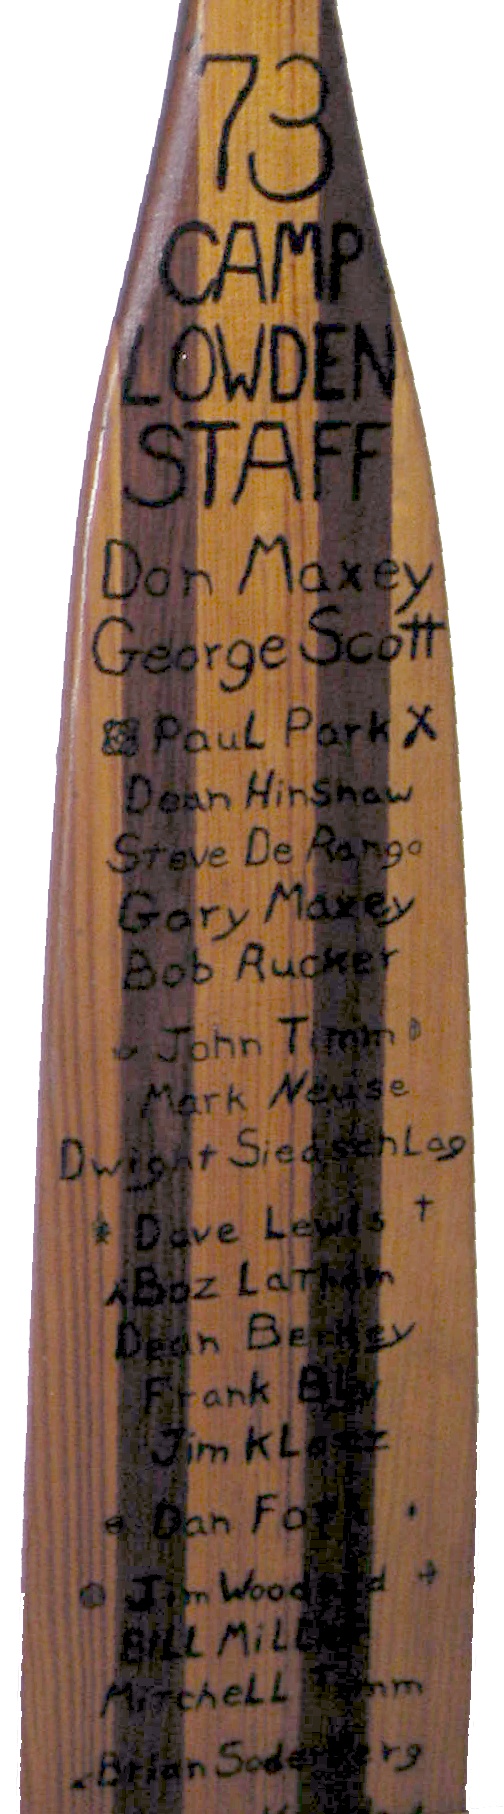 73
CAMP
LOWDEN
STAFF
Don Maxey
George Scott
PauL Park X
Dean Hinshaw
Steve De Rango
Gary Maxey
Bob Rucker
John Timm
Mark Neuse
Dwight SiedschLag
Dave Lewis
Boz Latham
Dean Berkey
Frank Bly
Jim
Dan
Jim Woodard
BiLL MiLLer
MitcheLL Timm
Brian Soderberg